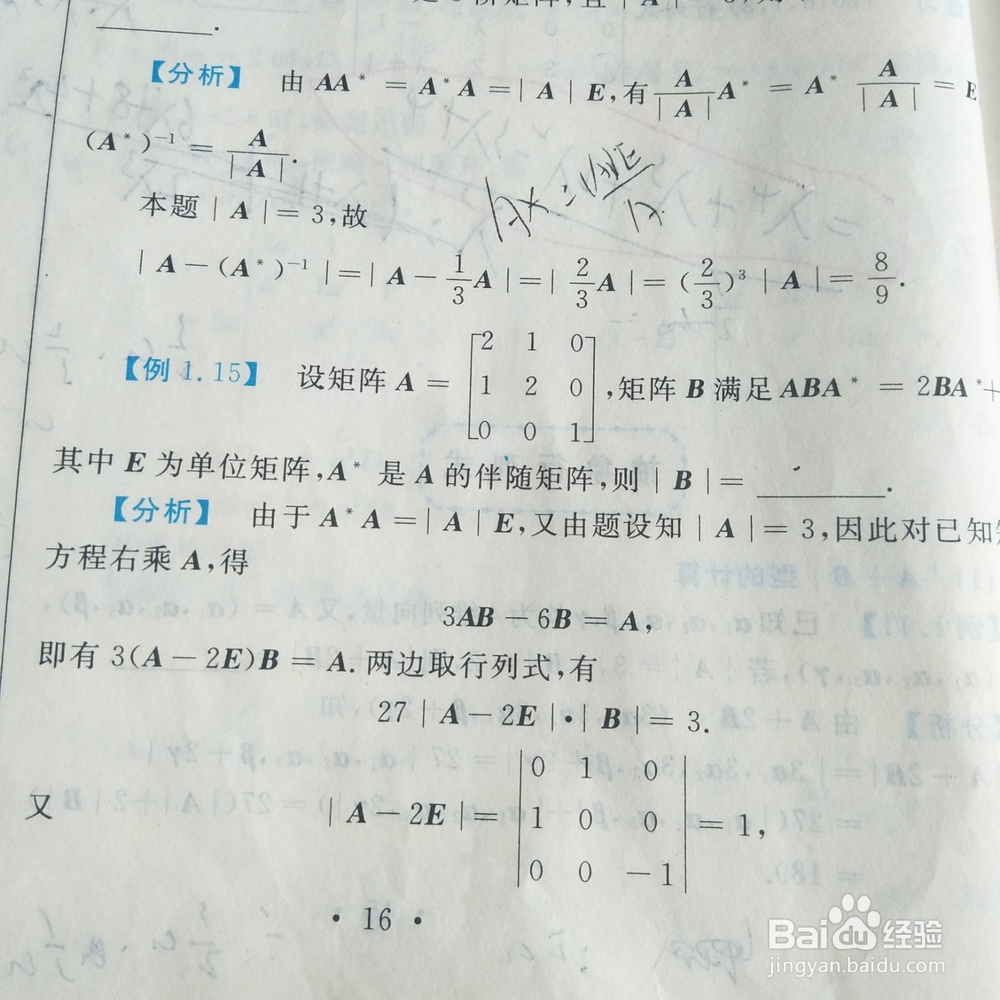 阶矩阵,且|A|
________.
【分析】 由 AA* = A*A = |A|E,有 A/|A| A* = A* A/|A| = E
(A*)⁻¹ = A/|A|.
本题|A| = 3,故
|A − (A*)⁻¹| = |A − 1/3 A| = |2/3 A| = (2/3)³|A| = 8/9.
【例 1.15】 设矩阵 A = [2 1 0; 1 2 0; 0 0 1],矩阵 B 满足 ABA* = 2BA* +
其中 E 为单位矩阵,A* 是 A 的伴随矩阵,则|B| = ________.
【分析】 由于 A*A = |A|E,又由题设知|A| = 3,因此对已知
方程右乘 A,得
3AB − 6B = A,
即有 3(A − 2E)B = A. 两边取行列式,有
27|A − 2E|·|B| = 3.
又 |A − 2E| = |0 1 0; 1 0 0; 0 0 −1| = 1,
· 16 ·
Baidu经验
jingyan.baidu.com